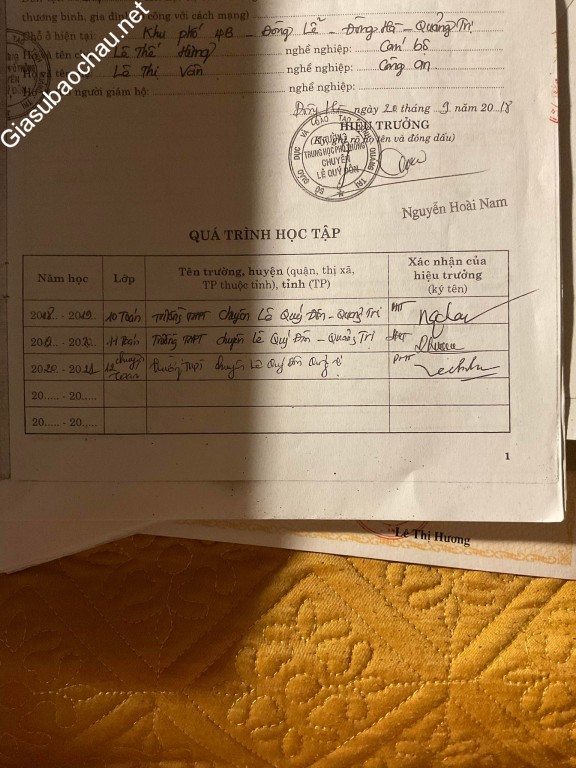 thương binh, gia đình có công với cách mạng)
Chỗ ở hiện tại: Khu phố 4B - Đông Lễ - Đông Hà - Quảng Trị
Họ và tên Lê Thế Hùng nghề nghiệp: Cán bộ
Họ và tên Lê Thị Vân nghề nghiệp: Công an
người giám hộ: nghề nghiệp:
Đông Hà, ngày 20 tháng 9 năm 2018
HIỆU TRƯỞNG
(Ký, ghi rõ họ tên và đóng dấu)
SỞ GIÁO DỤC VÀ ĐÀO TẠO TỈNH QUẢNG TRỊ
TRƯỜNG
TRUNG HỌC PHỔ THÔNG
CHUYÊN
LÊ QUÝ ĐÔN
Nguyễn Hoài Nam
QUÁ TRÌNH HỌC TẬP
Năm học Lớp Tên trường, huyện (quận, thị xã, TP thuộc tỉnh), tỉnh (TP) Xác nhận của hiệu trưởng (ký tên)
2018.. - 2019.. 10 Toán Trường THPT chuyên Lê Quý Đôn - Quảng Trị PHT
2019.. - 2020.. 11 Toán Trường THPT chuyên Lê Quý Đôn - Quảng Trị PHT
2020 - 2021 12 chuyên Toán Trường THPT chuyên Lê Quý Đôn Quảng Trị PHT
20..... - 20.....
20..... - 20.....
1
Lê Thị Hương
Giasubaochau.net